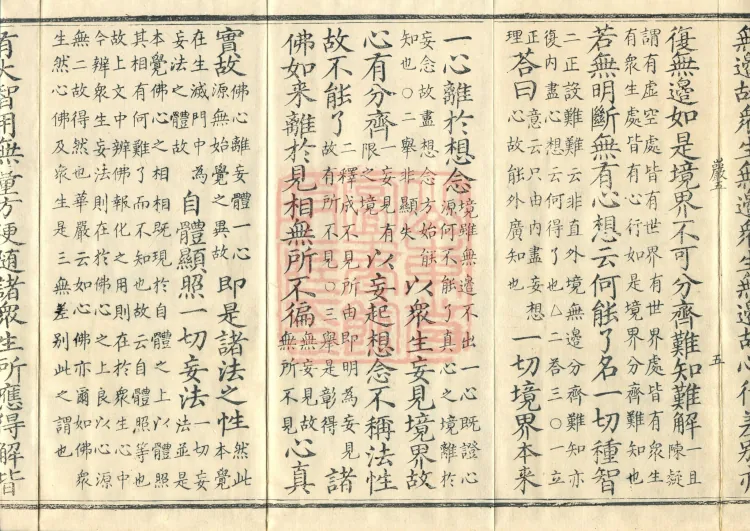 無邊故衆生無邊衆生無邊故心行差別亦
嚴五
五
復無邊如是境界不可分齊難知難解一且陳疑
謂有虛空處皆有世界有世界處皆有衆生
有衆生處皆有心行如是境界分齊難知也
若無明斷無有心想云何能了名一切種智
二正設難難云非直外境無邊分齊難知亦
復內盡心想云何得了也乙二答三〇一立
正理答曰意云只由內盡妄想心故能外廣知也一切境界本來
一心離於想念境雖無邊不出一心既證心源何不能了真心之境離於
妄念故盡想念方始能知也〇二舉非顯失以衆生妄見境界故
心有分齊妄見有限之境以妄起想念不稱法性
故不能了二釋成不見所由即明為妄見故有所不見〇三舉是彰得諸
佛如来離於見相無所不徧無妄見故無所不見心真
實故佛心離妄體一心源無始覺之異故即是諸法之性然此本覺
在生滅門中為妄法之體故自體顯照一切妄法一切妄法並是
本覺佛心之相相既現於自體之上以體照
其相有何難了而不知也故云自體照等也
故上文中辨佛報化之用則在於衆生心中
今辨衆生妄法則在於佛心之上良以心源
無二故得然也華嚴云如心佛亦爾如佛衆
生然心佛及衆生是三無差別此之謂也
有大智用無量方便隨諸衆生所應得解皆